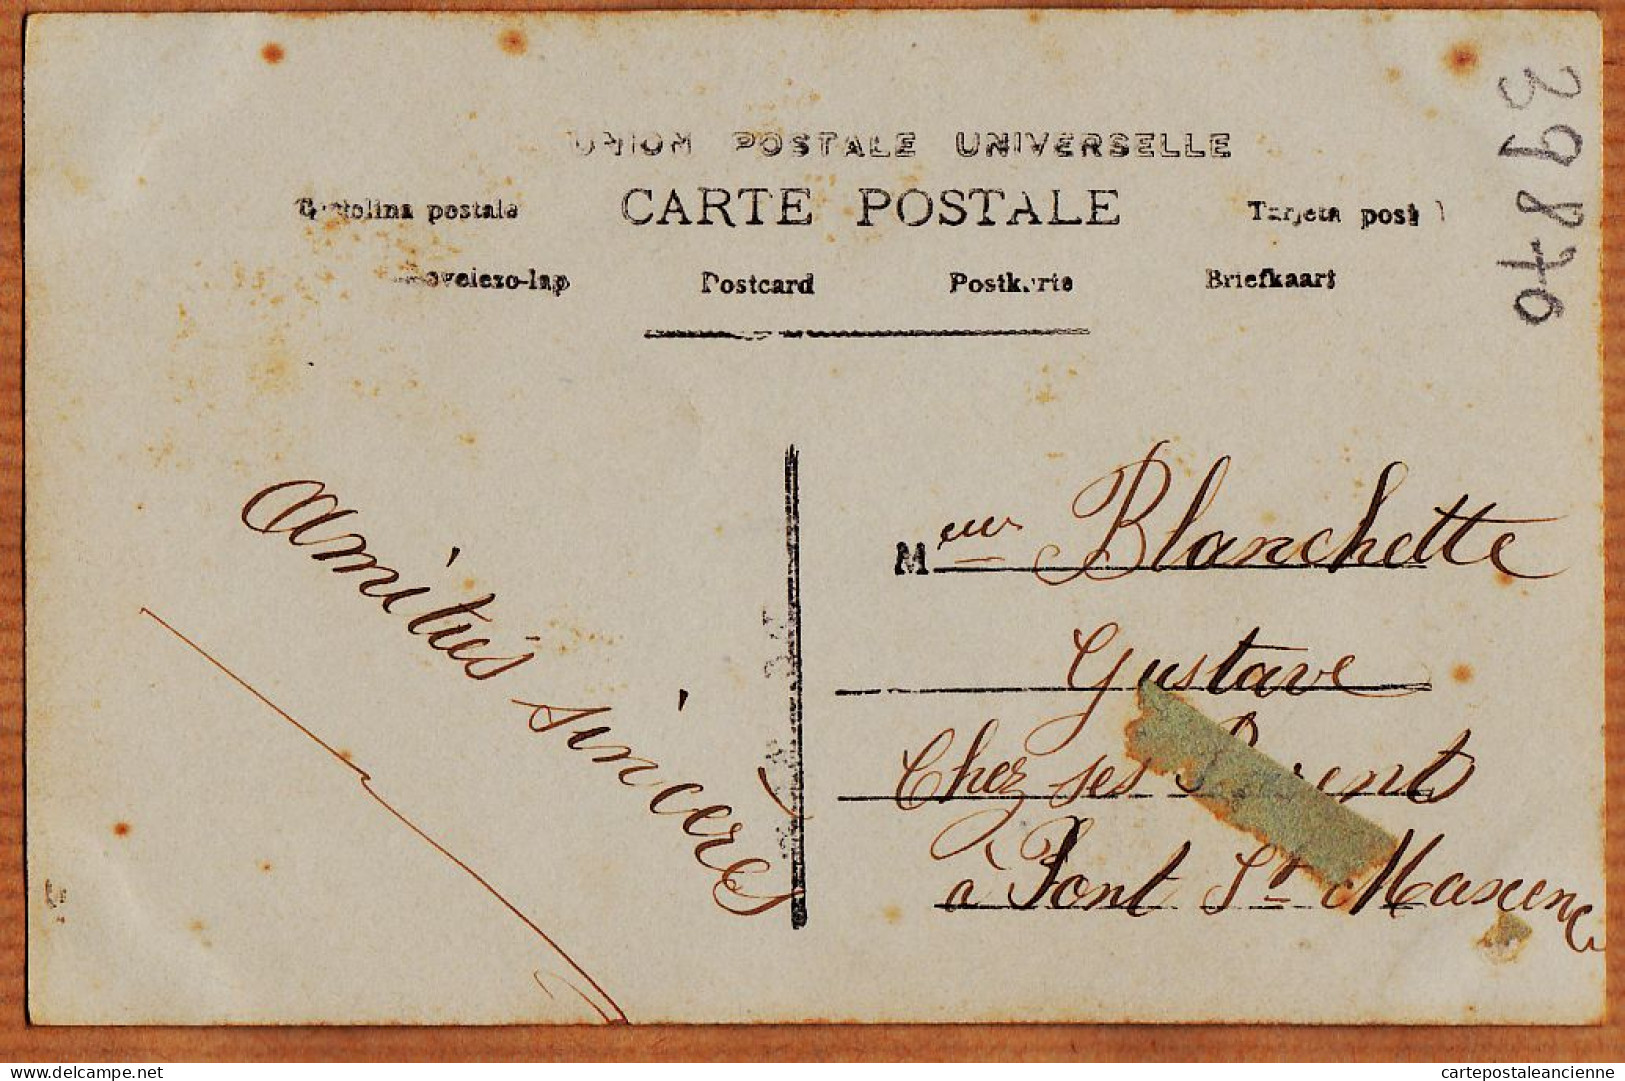 UNION POSTALE UNIVERSELLE
CARTE POSTALE
Cartolina postale
Tarjeta post
Levelezo-lap
Postcard
Postkarte
Briefkaart
39876
Amitiés sincères
Melle Blanchette
Gustave
Chez ses Parents
à Pont Ste Maxence
delcampe.net
cartepostaleancienne